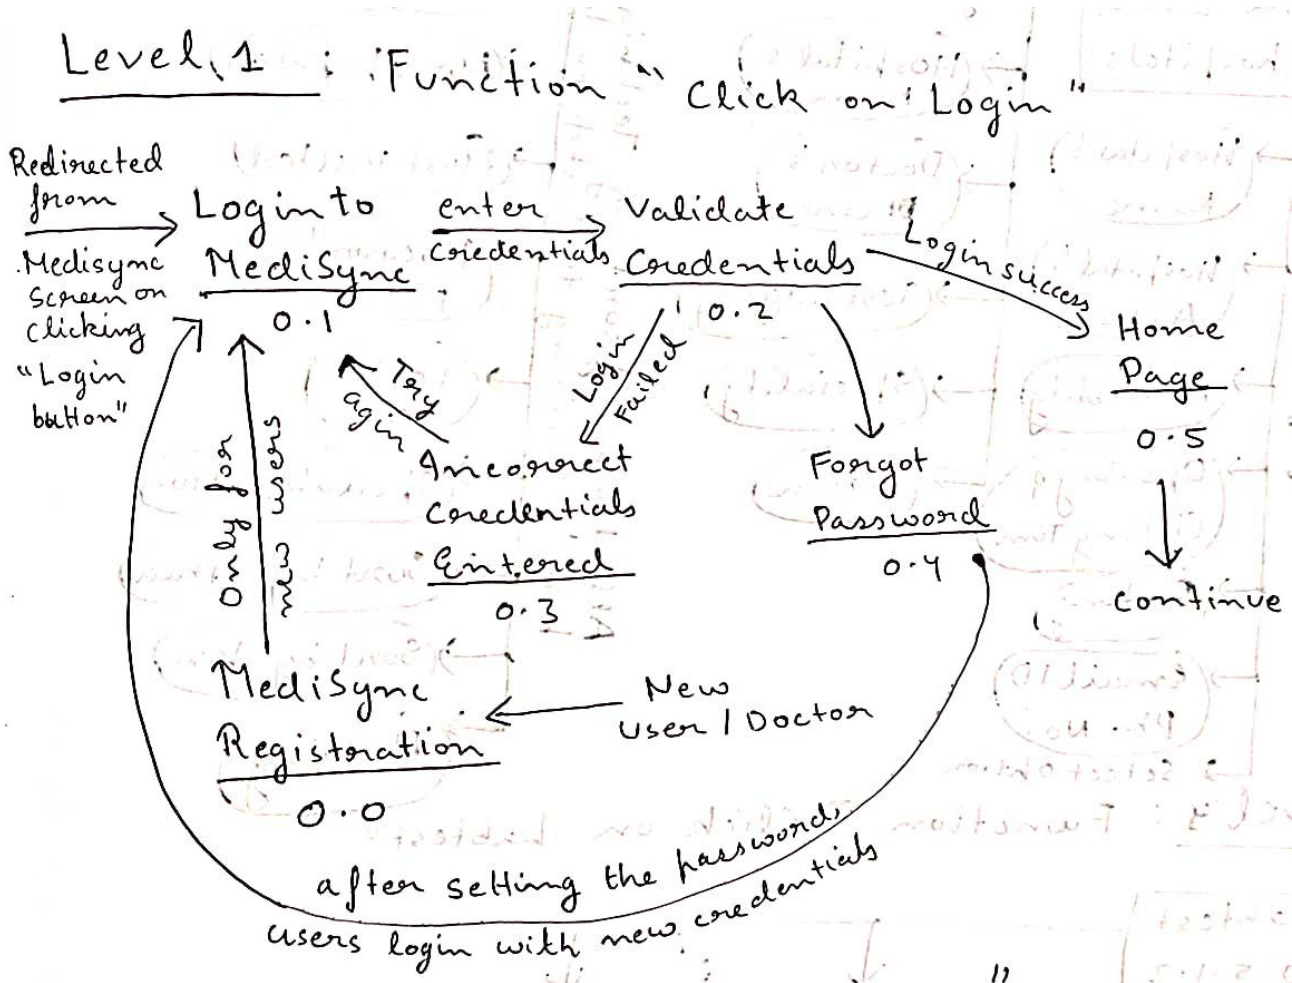 Level 1 : Function "Click on Login"
Redirected
from
Medisync
Screen on
clicking
"Login
button"
Login to
MediSync
0.1
enter
credentials
Validate
Credentials
0.2
Login success
Home
Page
0.5
continue
Login
Failed
Try
agin
Incorrect
Credentials
Entered
0.3
Forgot
Password
0.4
Only for
new users
MediSync
Registration
0.0
New
User / Doctor
after setting the password,
users login with new credentials